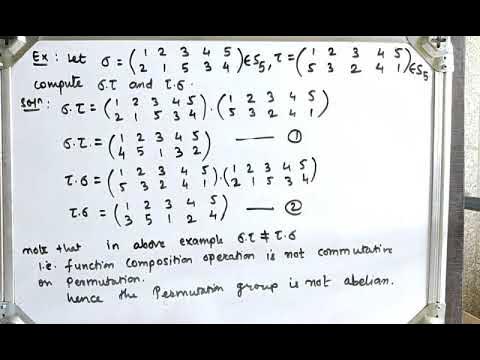 Ex: Let σ = (1 2 3 4 5 / 2 1 5 3 4) ∈ S5, τ = (1 2 3 4 5 / 5 3 2 4 1) ∈ S5
compute σ.τ and τ.σ.
Soln: σ.τ = (1 2 3 4 5 / 2 1 5 3 4) . (1 2 3 4 5 / 5 3 2 4 1)
σ.τ. = (1 2 3 4 5 / 4 5 1 3 2) —— ①
τ.σ = (1 2 3 4 5 / 5 3 2 4 1) . (1 2 3 4 5 / 2 1 5 3 4)
τ.σ = (1 2 3 4 5 / 3 5 1 2 4) —— ②
note that in above example σ.τ ≠ τ.σ
i.e. function composition operation is not commutative
on permutation.
hence the Permutation group is not abelian.